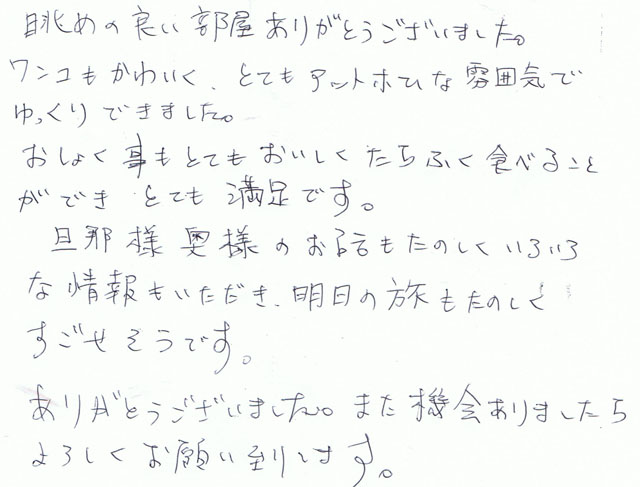 眺めの良い部屋ありがとうございました。
ワンコもかわいく、とてもアットホームな雰囲気で
ゆっくりできました。
おしょく事もとてもおいしくたらふく食べること
ができ とても満足です。
旦那様奥様のお話もたのしくいろいろ
な情報もいただき、明日の旅もたのしく
すごせそうです。
ありがとうございました。また機会ありましたら
よろしくお願い到します。